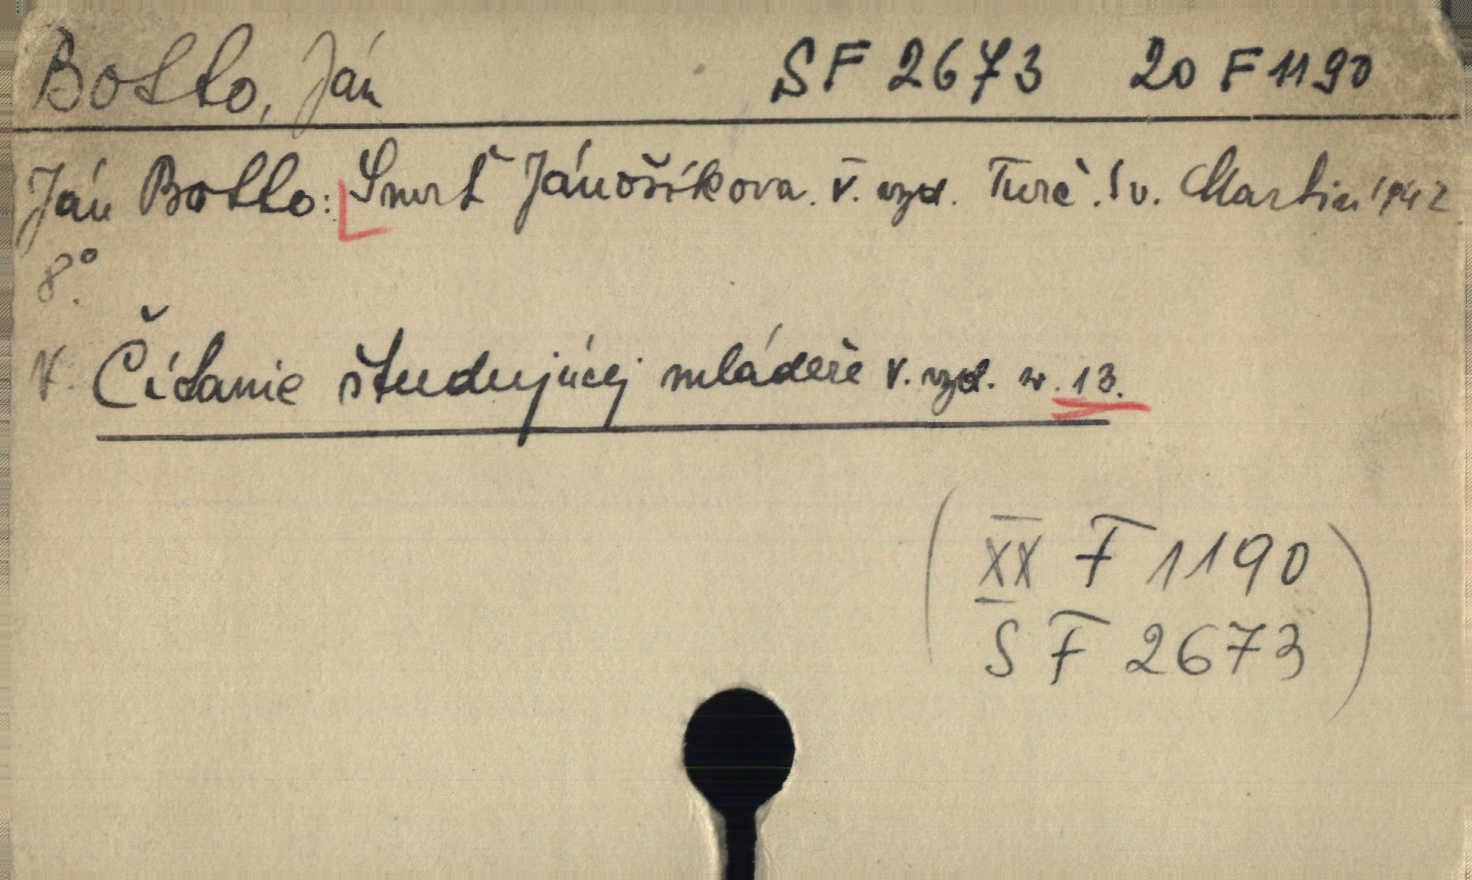 Botto, Ján SF 2673 20 F 1190
Ján Botto: Smrť Jánošíkova. V. vyd. Turč. Sv. Martin 1942
8°.
V. Čítanie študujúcej mládeže V. vyd. sv. 13.
(XX F 1190
S F 2673)